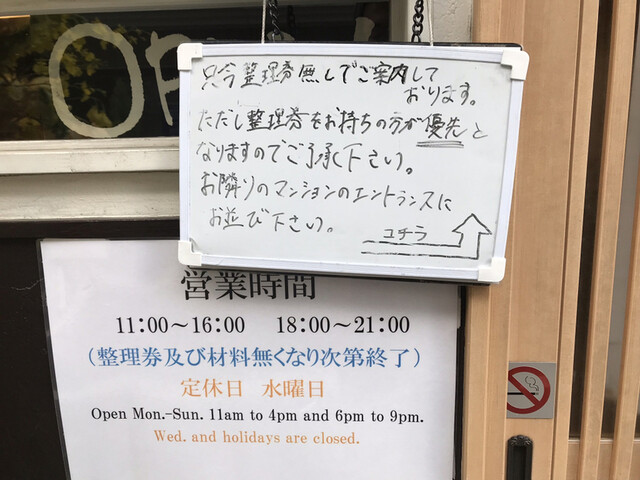 OP
只今整理券無しでご案内して
おります。
ただし整理券をお持ちの方が優先と
なりますのでご了承下さい。
お隣りのマンションのエントランスに
お並び下さい。
コチラ
営業時間
11:00～16:00 18:00～21:00
(整理券及び材料無くなり次第終了)
定休日 水曜日
Open Mon.-Sun. 11am to 4pm and 6pm to 9pm.
Wed. and holidays are closed.